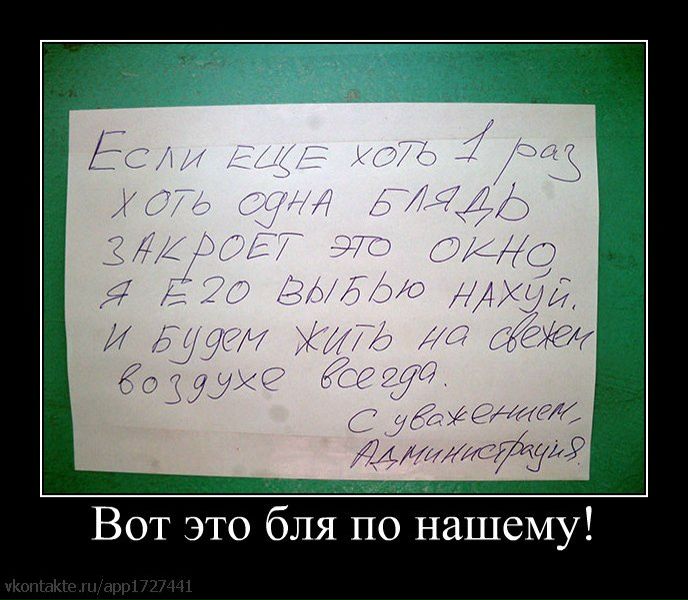 Если ЕЩЕ хоть 1 раз
хоть одна БЛЯДЬ
ЗАКРОЕТ ЭТО ОКНО,
Я ЕГО ВЫБЬЮ НАХУЙ.
И БУДЕМ ЖИТЬ на свежем
воздухе всегда.
С уважением,
Администрация.
Вот это бля по нашему!
vkontakte.ru/app1727441